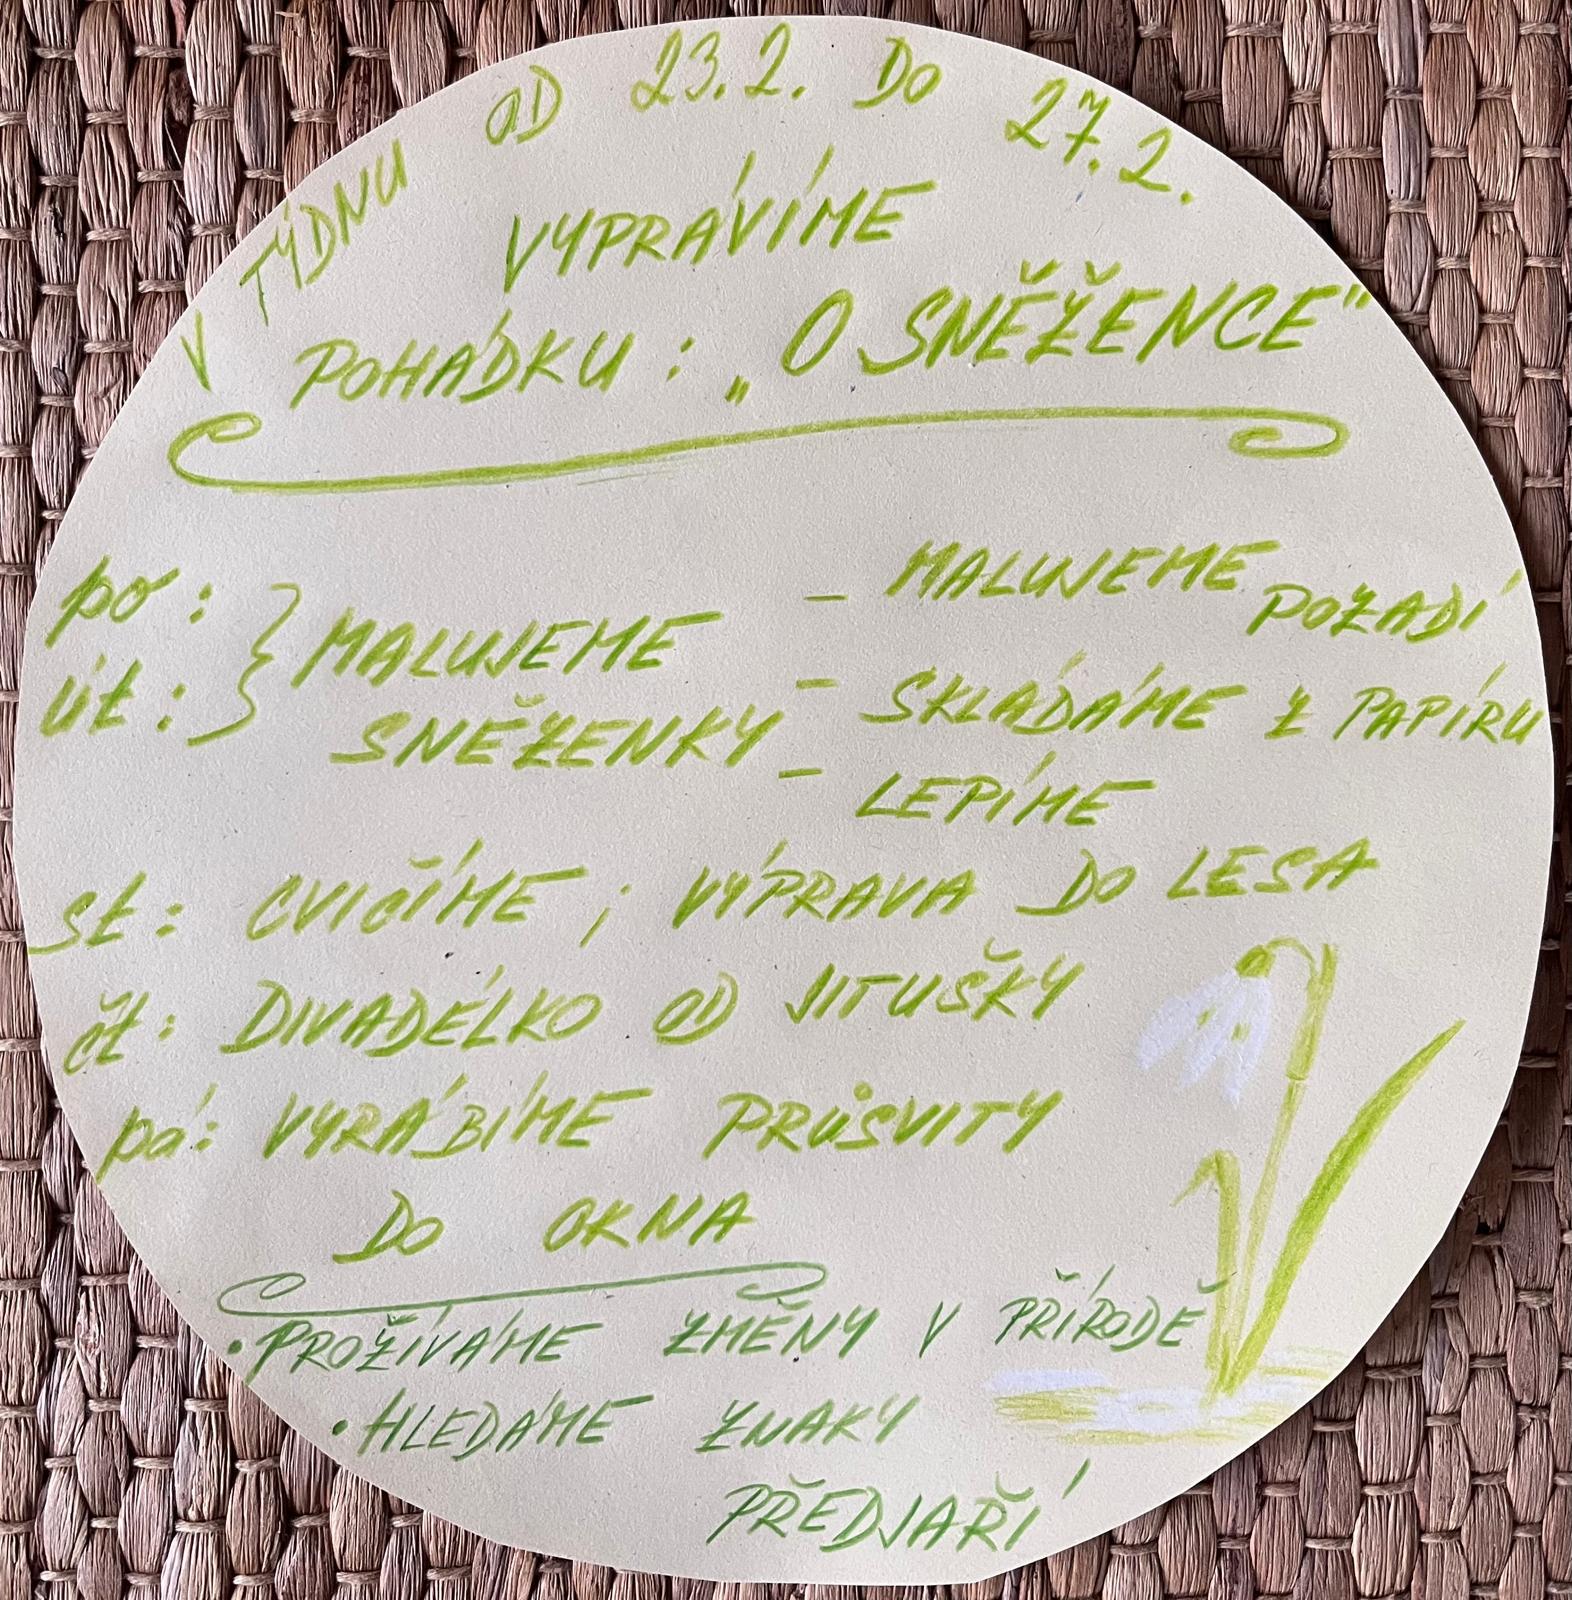 V TÝDNU OD 23.2. DO 27.2.
VYPRÁVÍME
POHÁDKU: „O SNĚŽENCE"
po: } MALUJEME - MALUJEME POZADÍ
út: SNĚŽENKY - SKLÁDÁME Z PAPÍRU
- LEPÍME
st: CVIČÍME; VÝPRAVA DO LESA
čt: DIVADÉLKO OD JITUŠKY
pá: VYRÁBÍME PRŮSVITY
DO OKNA
• PROŽÍVÁME ZMĚNY V PŘÍRODĚ
• HLEDÁME ZNAKY
PŘEDJAŘÍ